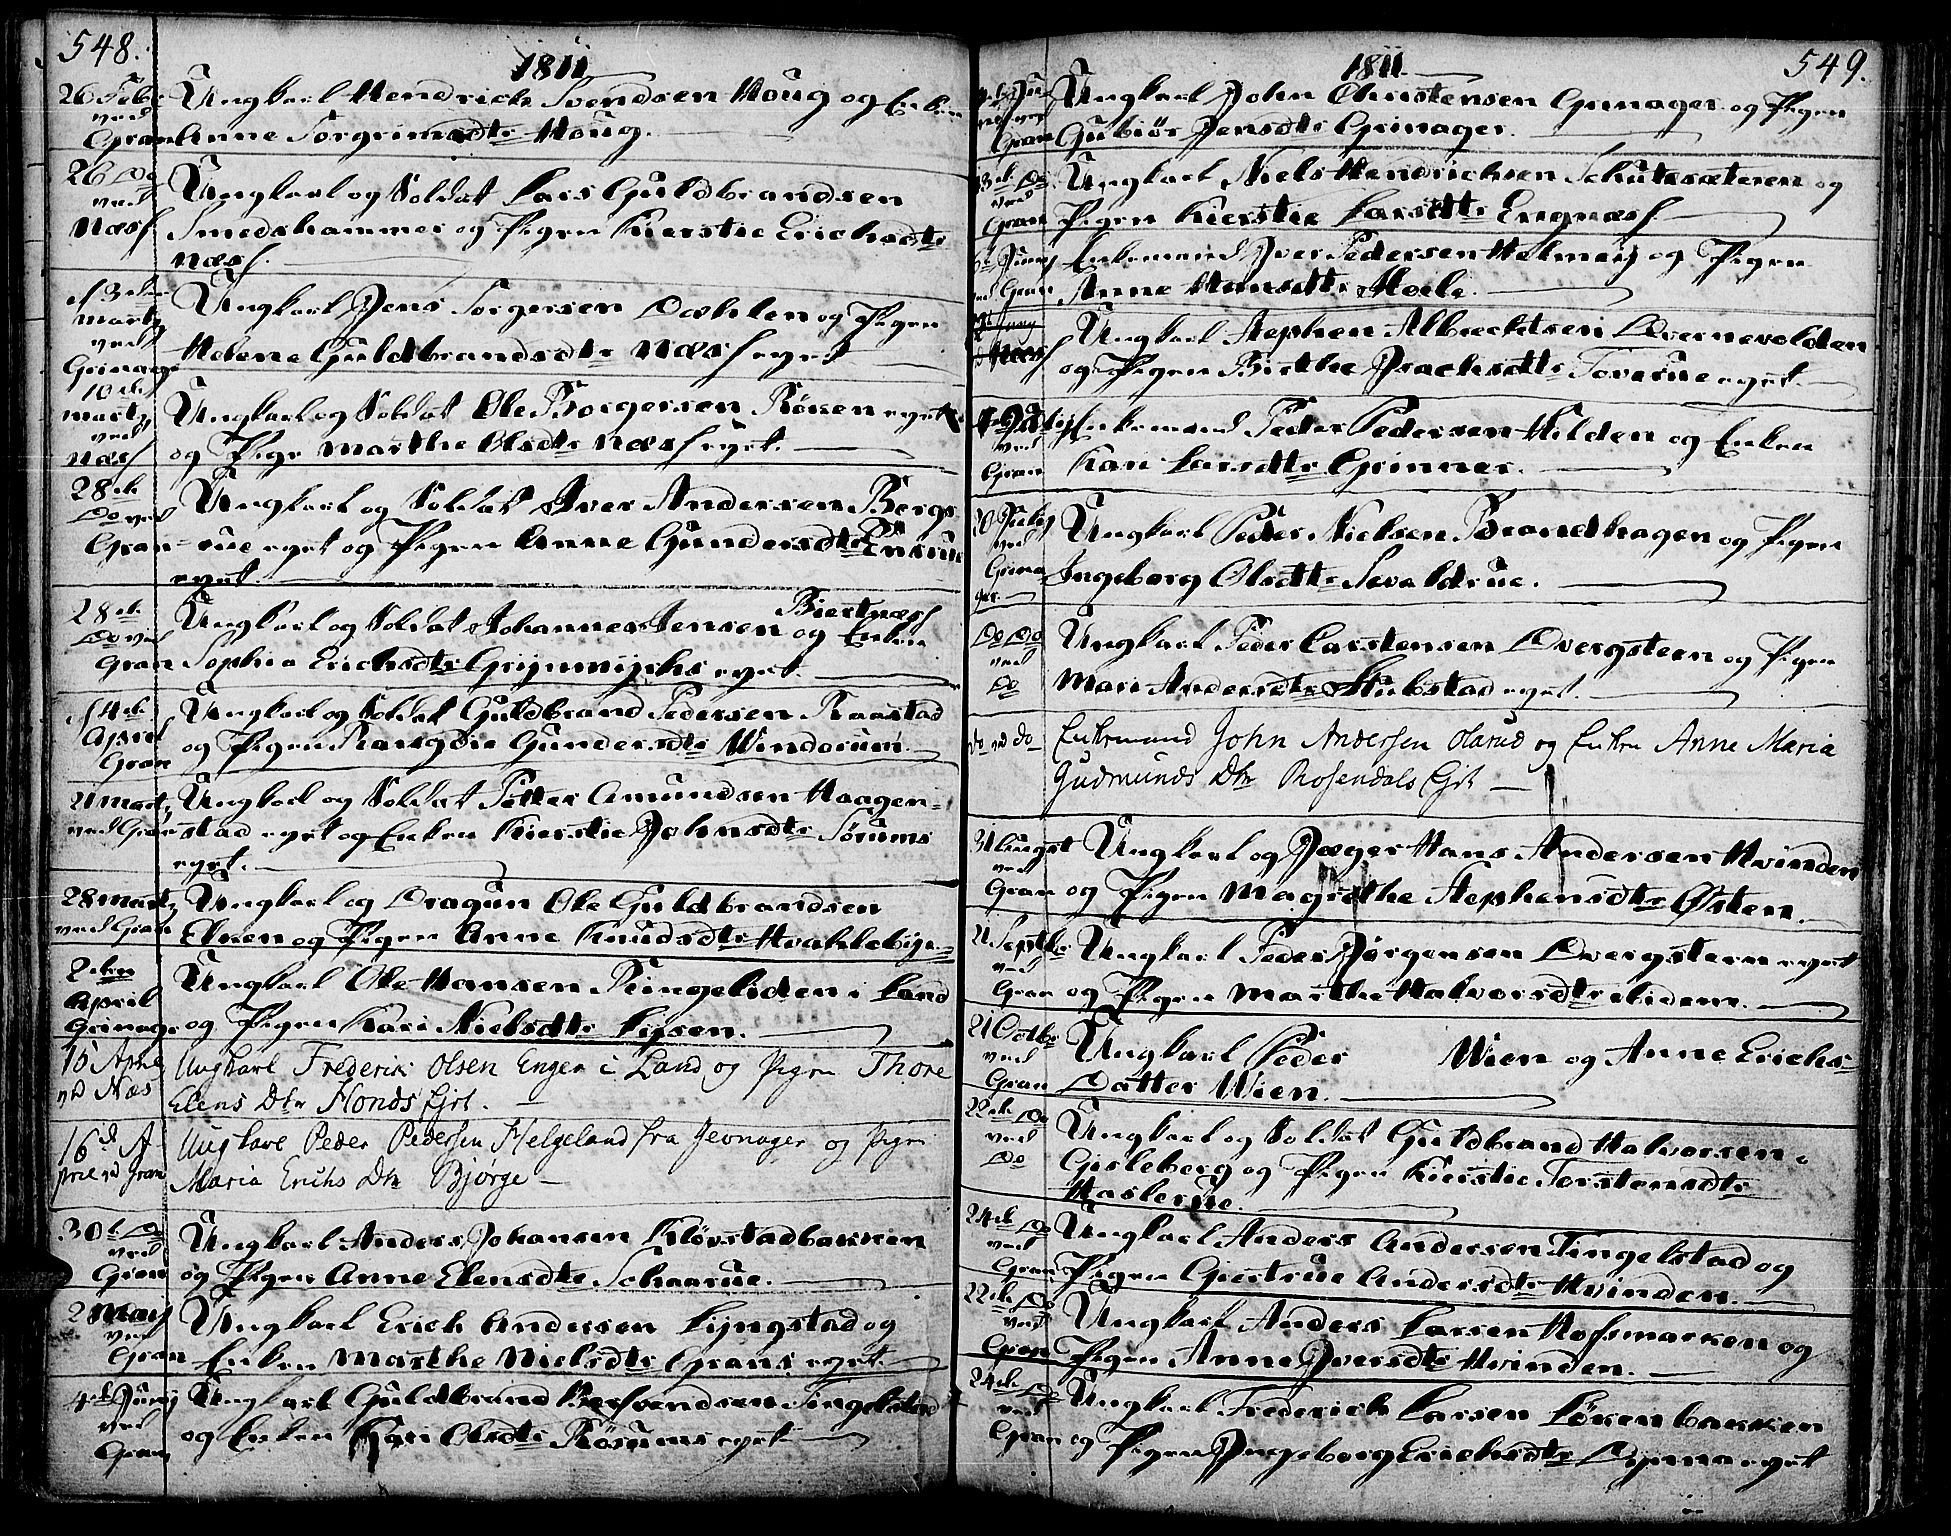 548.
1811
26 Febr ved Gran
Ungkarl Hendrich Svendsen Houg og Enken
Anne Torgrimsdtr Houg.
26 Do ved Næss
Ungkarl og Soldat Lars Guldbrandsen
Smedshammer og Pigen Kierstie Erichsdtr
Næss.
Marty ved Grinager
Ungkarl Jens Torgersen Dæhlen og Pigen
Helene Guldbrandsdtr Næss eyet
10de Marty ved Næss
Ungkarl og Soldat Ole Borgersen Røken eyet
og Pige Marthe Olsdtr Næss eyet.
28de Do ved Gran
Ungkarl og Soldat Iver Andersen Bergs
rue eyet og Pigen Anne Gundersdtr
eyet.
28de Do ved Gran
Ungkarl og Soldat Johannes Jensen Biertnæss og Enken
Sophia Erichsdtr eyet.
14de April Gran
Ungkarl og Soldat Guldbrand Pedersen Raastad
og Pigen Rangdie Gundersdtr Windorum.
Marty ved Gran
Ungkarl og Soldat Petter Amundsen Haagen-
stad eyet og Enken Kierstie Johnsdtr Sørums
eyet.
28 Marty ved Gran
Ungkarl og Dragun Ole Guldbrandsen
Elken og Pigen Anne Knudsdtr Hvahlebye
2den April Grinager
Ungkarl Ole Hansen Ringeliden i Land
og Pigen Kari Nielsdtr Lysen.
15 Apr ved Næs
Ungkarl Frederik Olsen Enger i Land og Pigen Thore
Elens Dtr Honds Ejet.
16d. April ved Gran
Ungkarl Peder Pedersen Helgeland fra Jevnager og Pigen
Maria Erichs Dtr Bjørge
30te Do ved Gran
Ungkarl Anders Johansen Kløvstadbakken
og Pigen Anne Elensdtr Schaarue.
2 May ved Gran
Ungkarl Erich Andersen Lyngstad og
Enken Marthe Nielsdtr Grans eyet.
4de Juny ved Gran
Ungkarl Guldbrand Tingelstad
og Enken Kari Olsdtr Røsums eyet
1811
549.
ved Gran
Ungkarl John Christensen Grinager og Pigen
Gubiør Jensdtr Grinager.
13de Do ved Gran
Ungkarl Niels Hendrichsen Schutesæteren og
Pigen Kierstie Larsdtr Engnæss.
Juny ved Gran
Enkemand Iver Pedersen Helmey og Pigen
Anne Hansdtr Moele.
Juny Næss
Ungkarl Stephen Albrechtsen Dvernevolden
og Pigen Birthe Isachsdtr Toverue eyet.
July ved Gran
Enkemand Peder Pedersen Hilden og Enken
Kari Larsdtr Grinner.
July ved Grinager
Ungkarl Peder Nielsen Brandhagen og Pigen
Ingeborg Olsdtr Sevaldrue.
Do Do ved Do
Ungkarl Peder Carstensen Dvergsteen og Pigen
Mari Andersdtr Stubstad eyet.
do ved do
Enkemand John Andersen Olerud og Enken Anne Maria
Gudmunds Dtr Rosendals Ejet
August ved Gran
Ungkarl og Jæger Hans Andersen Hvinden
og Pigen Magrethe Stephensdtr Østen.
21 Septbr ved Gran
Ungkarl Peder Jørgensen Dvergsteen eyet
og Pigen Marthe Halvorsdtr Lidem.
21 Octbr ved Gran
Ungkarl Peder Wien og Anne Erichs-
Datter Wien.
22de Do ved Do
Ungkarl og Soldat Guldbrand Halvorsen
Gisleberg og Pigen Kierstie Torstensdtr
Haslerue.
24de Do ved Gran
Ungkarl Anders Andersen Tingelstad og
Pigen Giertrue Andersdtr Hvinden.
22de Do ved Gran
Ungkarl Anders Larsen Hofsmarken og
Pigen Anne Iversdtr Hvinden.
24de Do ved Gran
Ungkarl Frederich Larsen Løkenbakken
og Pigen Ingeborg Erichsdtr Dynna eyet